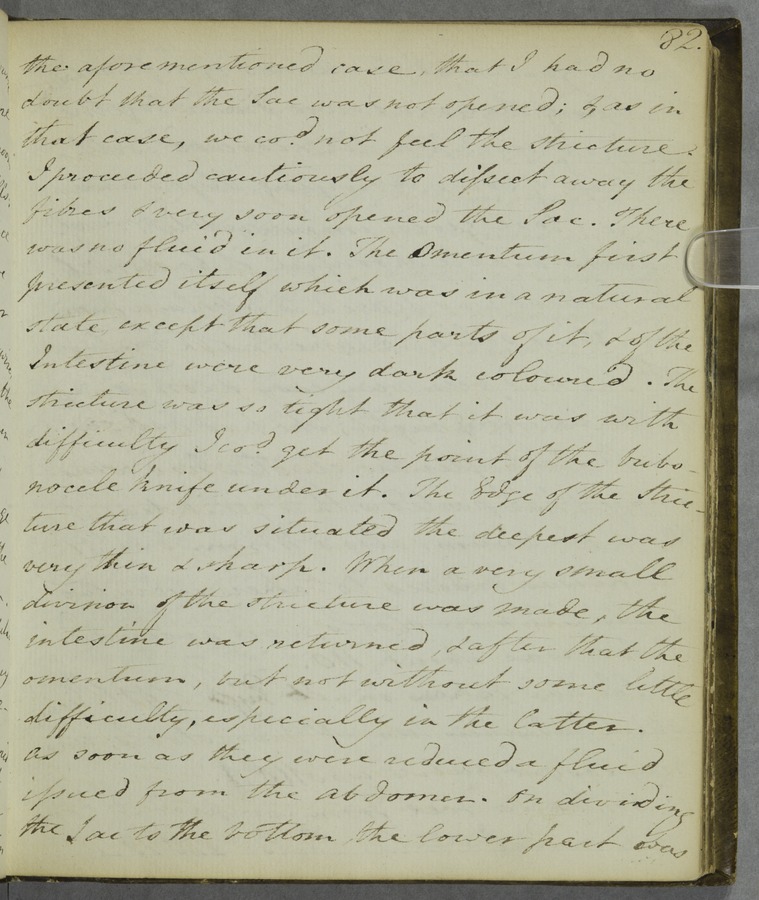 82.
the aforementioned case, that I had no
doubt that the Sac was not opened; & as in
that case, we cod. not feel the stricture.
I proceeded cautiously to dissect away the
fibres & very soon opened the Sac. There
was no fluid in it. The Omentum first
presented itself which was in a natural
state except that some parts of it, & of the
Intestine were very dark coloured. The
stricture was so tight that it was with
difficulty I cod. get the point of the bubo-
nocele knife under it. The Edge of the stric-
ture that was situated the deepest was
very thin & sharp. When a very small
division of the stricture was made, the
intestine was returned, & after that the
omentum, but not without some little
difficulty, especially in the latter.
As soon as they were reduced a fluid
issued from the abdomen. On dividing
the Sac to the bottom, the lower part was